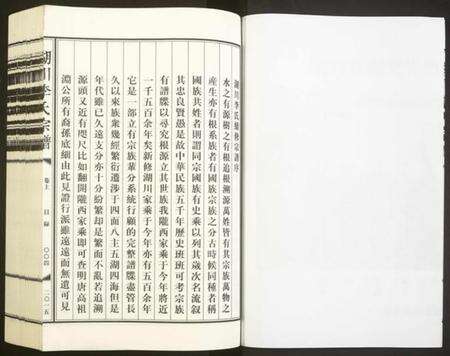 湖川李氏續修宗譜序
水之有源樹之有根追根溯源萬姓皆有其宗族萬物之
產生亦有根系族者有國族宗族之分古時候同種者稱
國族共姓者則謂同宗國族有史乘以列其歲次名流叙
其忠良賢愚是故中華民族五千年歷史班班可考宗族
有譜牒以尋究根源立其世族我隴西家乘于今年將近
一千五百余年矣新修湖川家乘于今亦有五百余年
它是一部立有宗族輩分系統行願的完整譜牒盡管長
久以來族衆幾經繁衍遷涉于四面八主五湖四海但是
年代雖已久遠支分亦十分紛繁却是繁而不亂若追溯
源頭又近有咫尺比如翻開隴西家乘即可查明唐高祖
淵公所有裔孫底細由此見證行派雖遠遠而無遺可見
湖川李氏宗譜
卷上
目録
〇〇四
二〇一五